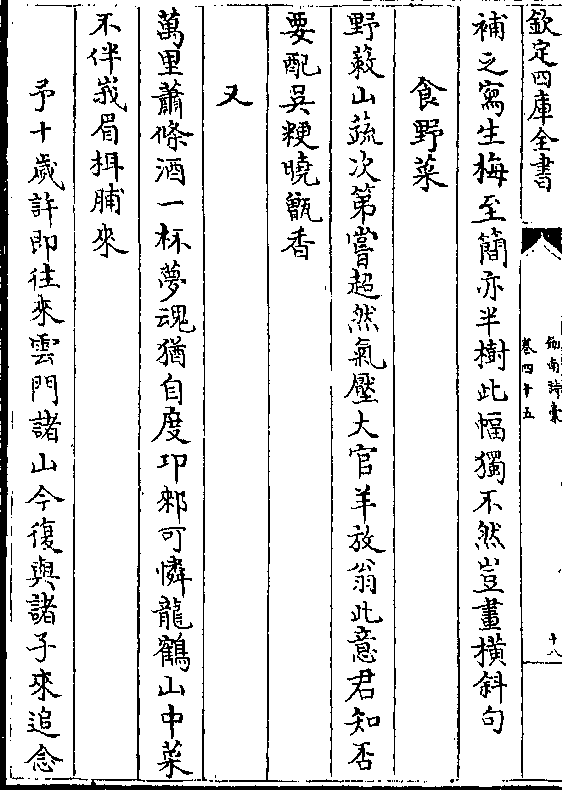 欽定四庫全書
劍南詩稾
卷四十五
十八
補之寫生梅至簡亦半樹此幅獨不然豈畫橫斜句
食野菜
野蔌山蔬次第嘗超然氣壓大官羊放翁此意君知否
要配吳粳曉甑香
又
萬里蕭條酒一杯夢魂猶自度邛郲可憐龍鶴山中菜
不伴峩眉栮脯來
予十歲許即往來雲門諸山今復與諸子來追念